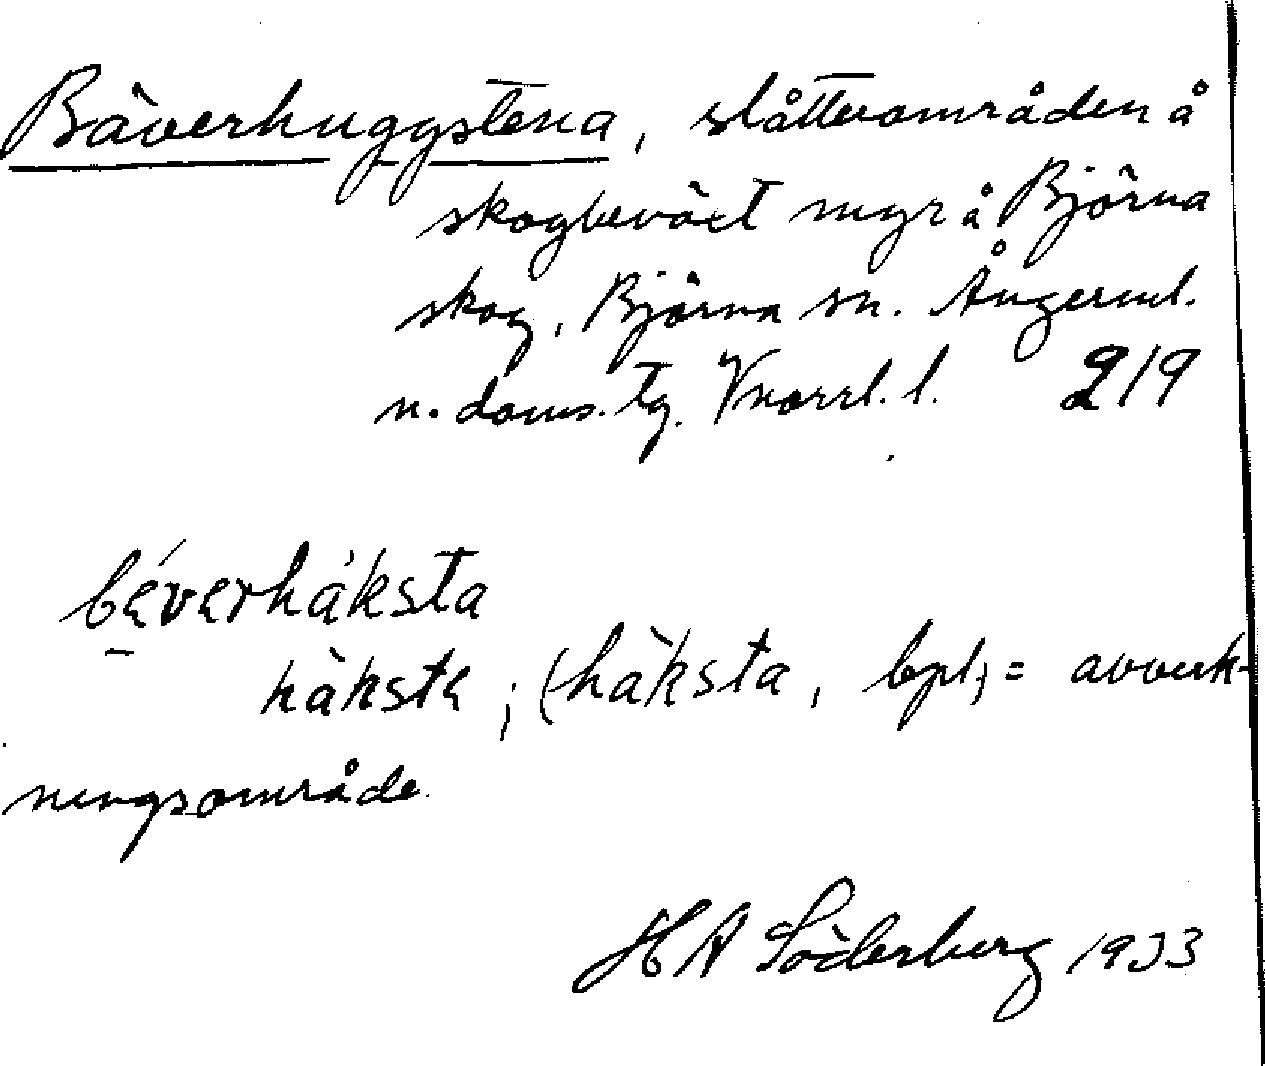 Bäverhuggstena, slåtterområden å
skogbeväxt myr å Björna
skog, Björna sn. Ångerml.
n. doms. tg. Vnorrl. l. 219
béverhàksta
hàkstɐ; (hàksta, bpl) = avverk-
ningsområde
H A Söderberg 1933